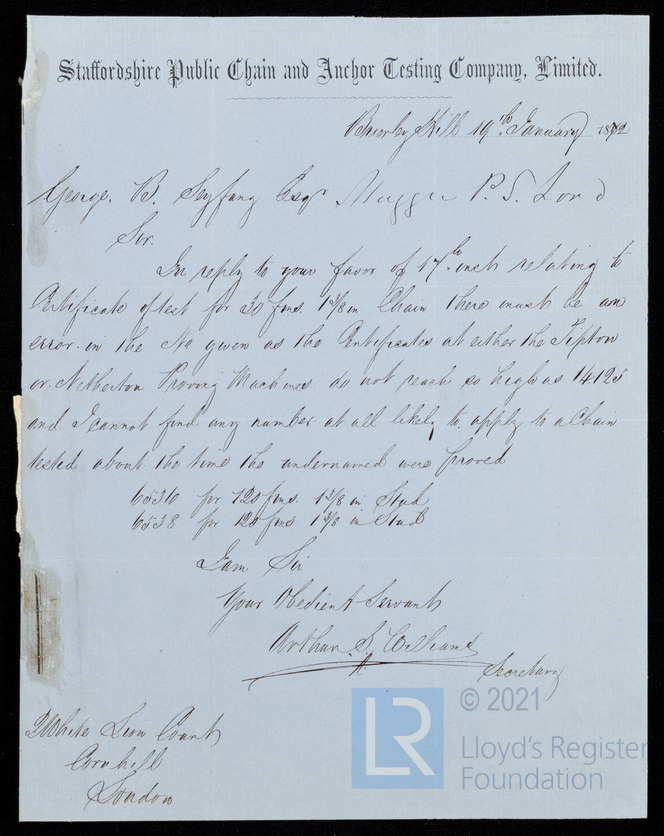 Staffordshire Public Chain and Anchor Testing Company, Limited.
Brierley Hill 19th January 1872
George. B. Seyfang Esqr P. S. Lond
Sir.
In reply to your favor of 17th inst relating to
Certificate of test for 30 fms. 1 3/8 in Chain there must be an
error in the No given as the Certificates at either the Tipton
or Netherton Proving Machines do not reach so high as 14125
and I cannot find any number at all likely to apply to a Chain
tested about the time the undernamed were proved
6536 for 120 fms. 1 3/8 in Stud
6538 for 120 fms 1 3/8 in Stud
I am Sir
Your Obedient Servant
Arthur S. Williams
Secretary
2 White Lion Court
Cornhill
London
LR
© 2021
Lloyd's Register
Foundation